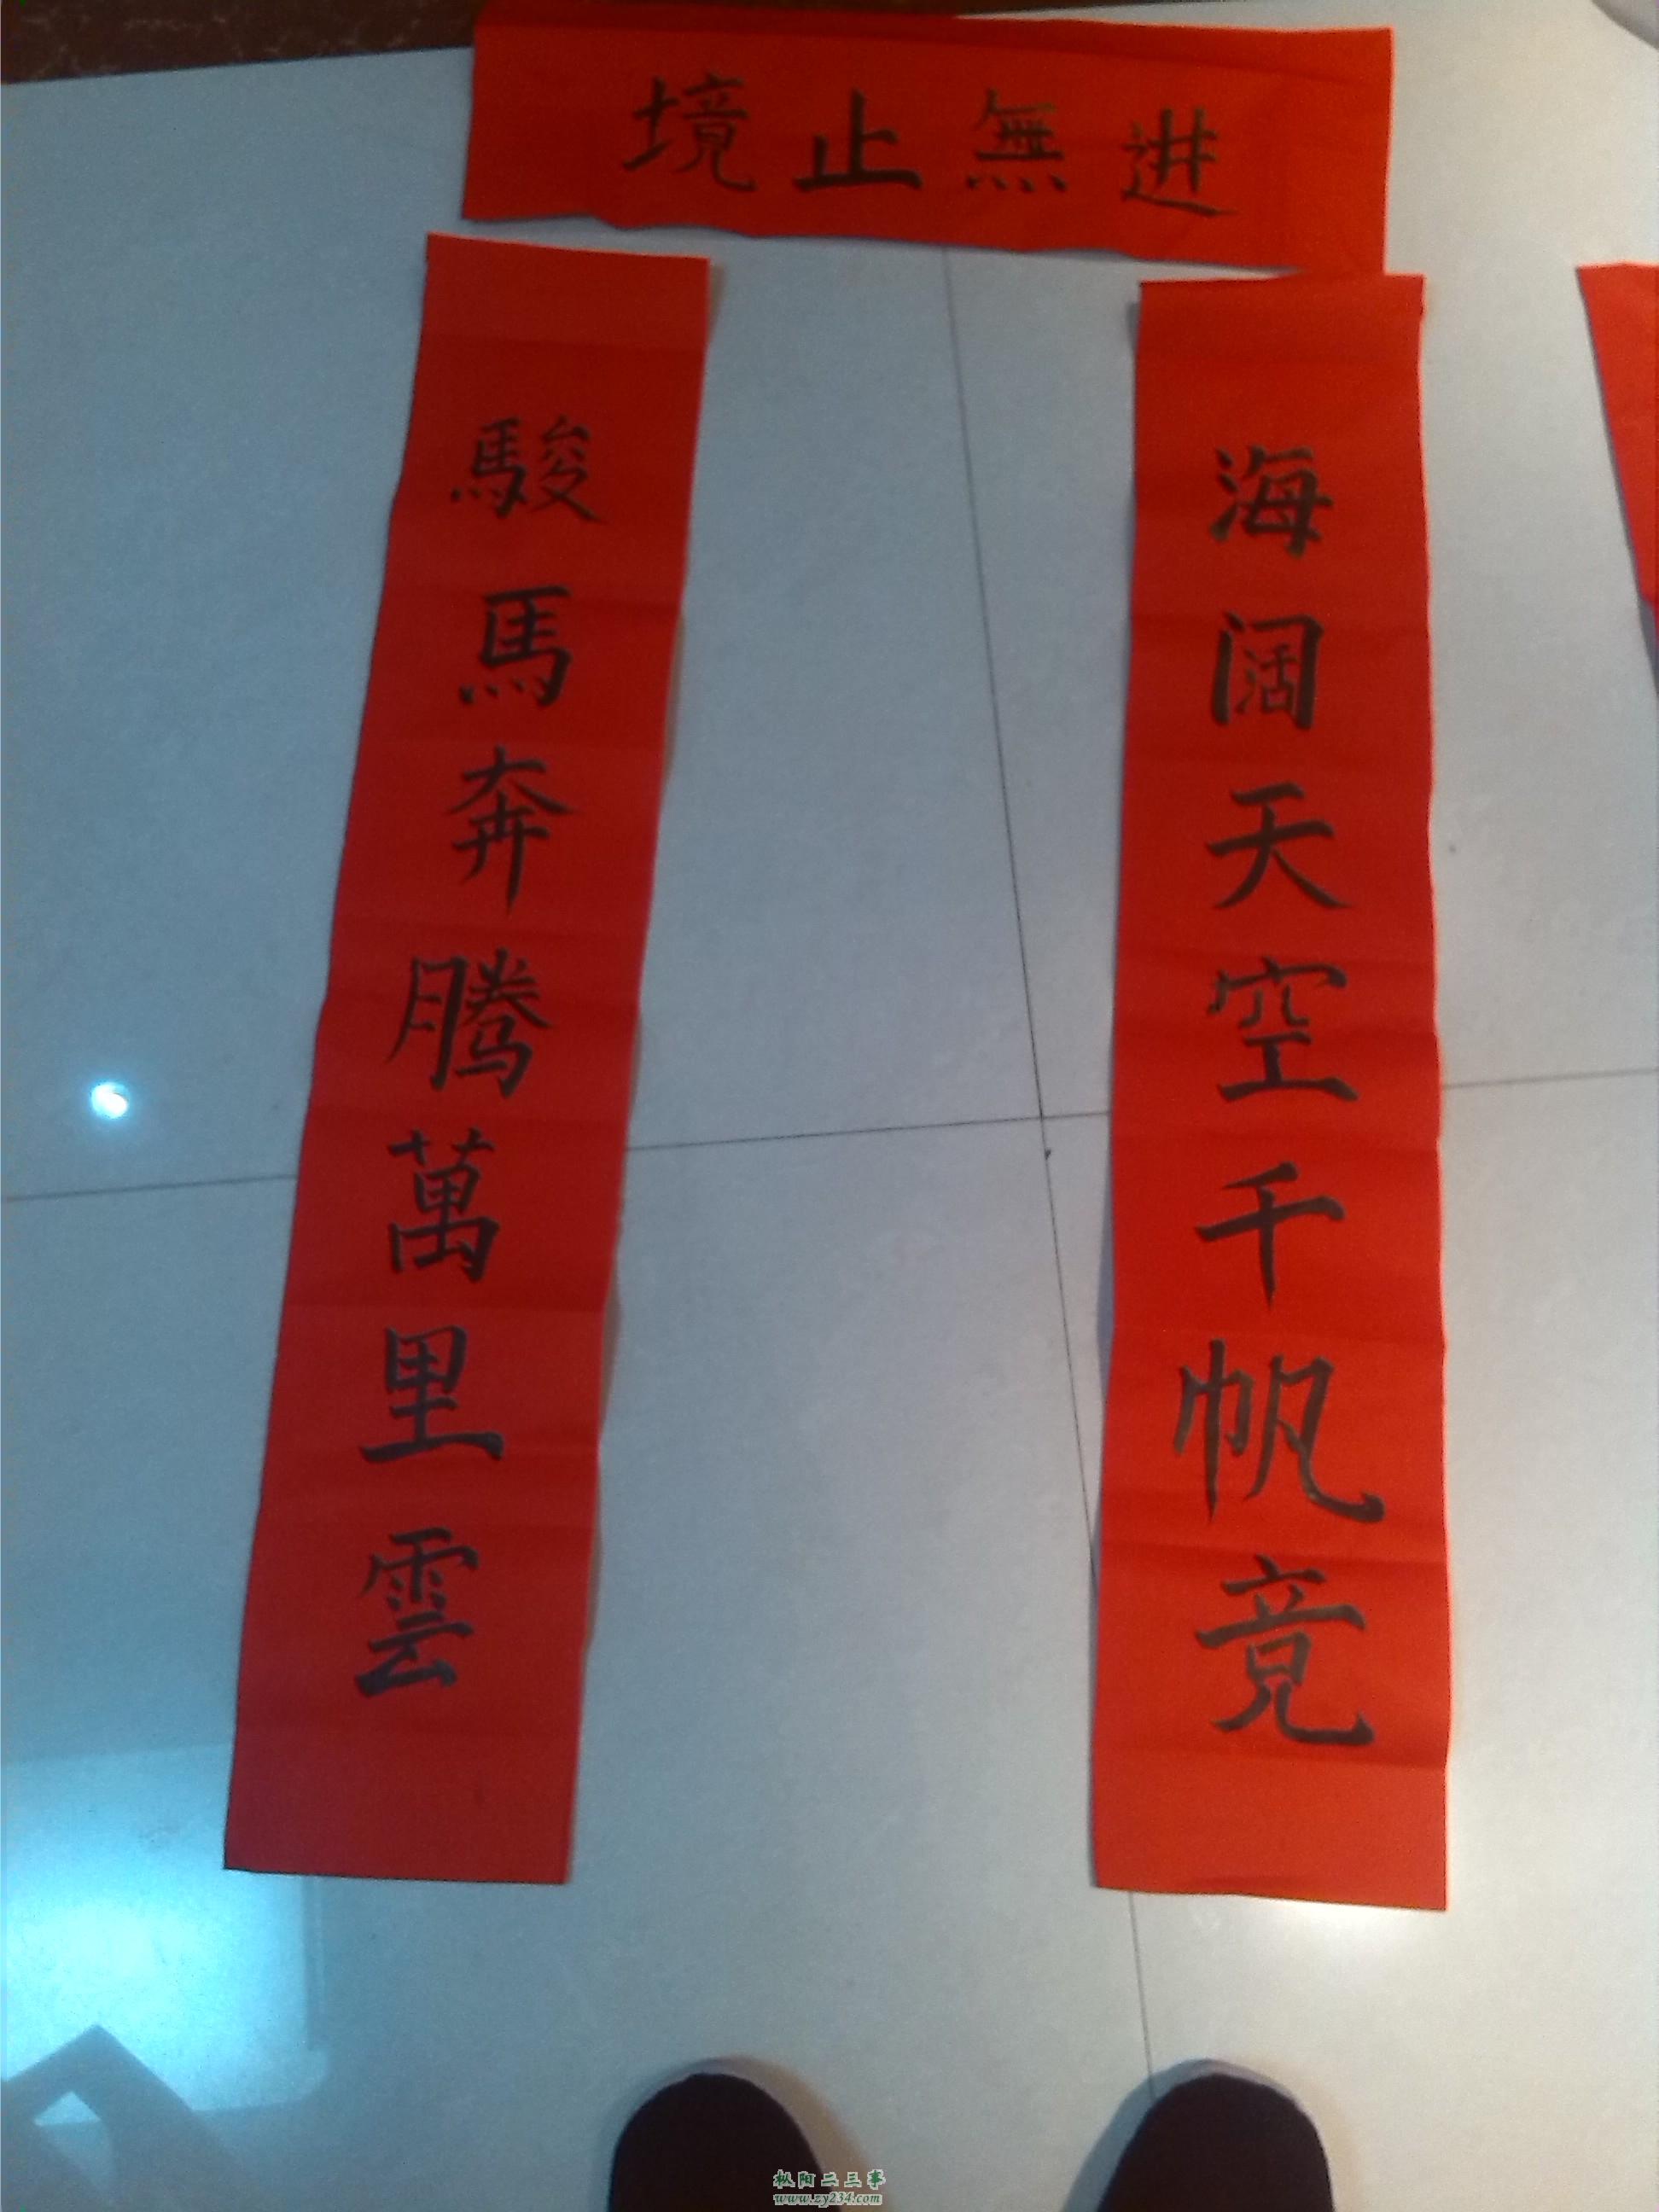 进無止境
海阔天空千帆竞
駿馬奔腾萬里雲
枞阳二三事
www.zy234.com